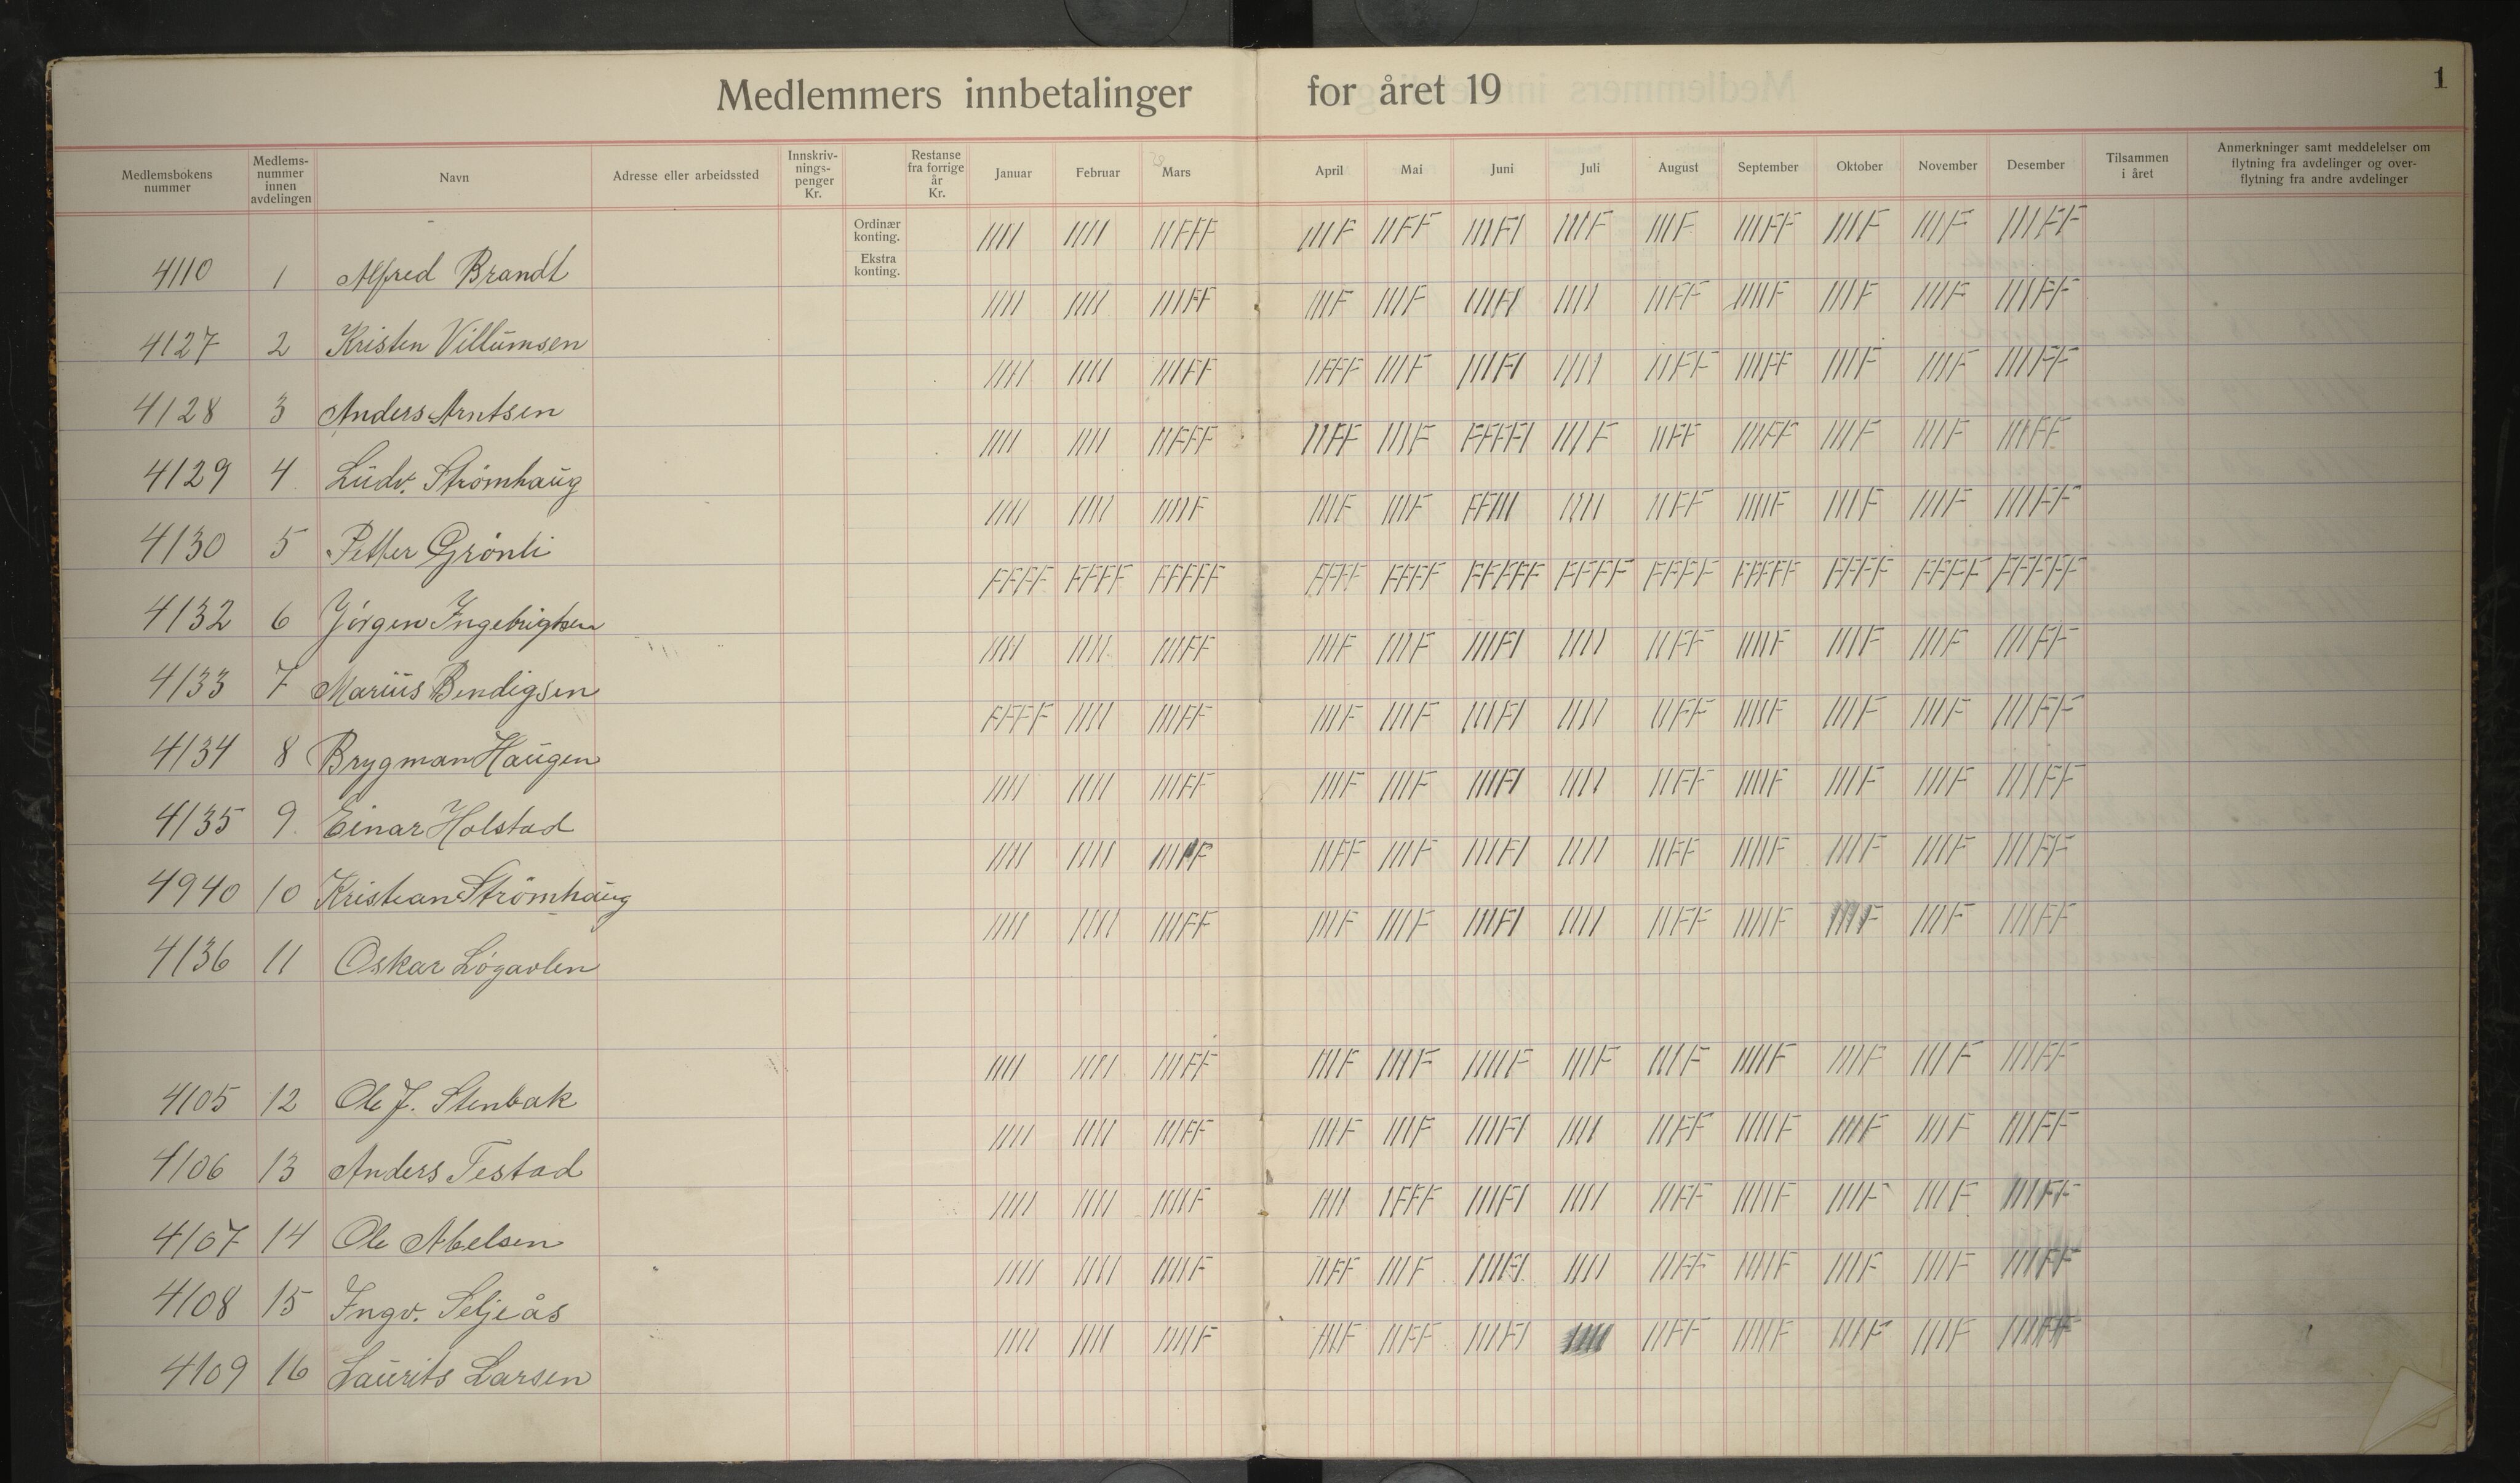 Medlemmers innbetalinger for året 19
1
Medlemsbokens nummer
Medlems-nummer innen avdelingen
Navn
Adresse eller arbeidssted
Innskriv-nings-penger Kr.
Restanse fra forrige år Kr.
Januar
Februar
Mars
April
Mai
Juni
Juli
August
September
Oktober
November
Desember
Tilsammen i året
Anmerkninger samt meddelelser om
flytning fra avdelinger og over-
flytning fra andre avdelinger
Ordinær konting.
Ekstra konting.
4110 1 Alfred Brandt IIII IIII IIFFF IIIF IIFF IIIFI IIIF IIIF IIIFF IIIF IIIF IIIFF
4127 2 Kristen Villumsen IIII IIII IIIFF IIIF IIIF IIIFI IIII IIFF IIIIF IIIF IIIF IIIFF
4128 3 Anders Arntsen IIII IIII IIIFF IFFF IIIF IIIFI IIII IIFF IIIFF IIIF IIIF IIIFF
4129 4 Ludv. Strömhaug IIII IIII IIFFF IIFF IIIF FFFFI IIIF IIFF IIIFF IIIF IIIF IIIFF
4130 5 Petter Grönli IIII IIII IIIIF IIIF IIIF FFIII IIII IIFF IIIIF IIIF IIIF IIIFF
4132 6 Jörgen Ingebrigtsen FFFF FFFF FFFFF FFFF FFFF FFFFF FFFF FFFF FFFFF FFFF FFFF FFFFF
4133 7 Marius Bendigsen IIII IIII IIIFF IIIF IIIF IIIFI IIII IIFF IIIIF IIIF IIIF IIIFF
4134 8 Brygman Haugen FFFF IIII IIIFF IIIF IIIF IIIFI IIII IIFF IIIIF IIIF IIIF IIIFF
4135 9 Einar Holstad IIII IIII IIIFF IIIF IIIF IIIFI IIII IIFF IIIIF IIIF IIIF IIIFF
4940 10 Kristian Strömhaug IIII IIII IIIFF IIFF IIIF IIIFI IIII IIFF IIIIF IIIF IIIF IIIFF
4136 11 Oskar Lögavlen IIII IIII IIIFF IIIF IIIF IIIFI IIII IIFF IIIIF IIIF IIIF IIIFF
4105 12 Ole J. Stenbak IIII IIII IIIFF IIIF IIIF IIIIF IIIF IIIF IIIIF IIIF IIIF IIIFF
4106 13 Anders Testad IIII IIII IIIFF IIIF IIIF IIIFI IIII IIFF IIIIF IIIF IIIF IIIFF
4107 14 Ole Abelsen IIII IIII IIIIF IIII IFFF IIIFI IIII IIFF IIIIF IIIF IIIF IIIFF
4108 15 Ingv. Seljeås IIII IIII IIIIF IIFF IIIF IIIFI IIII IIFF IIIIF IIIF IIIF IIIFF
4109 16 Laurits Larsen IIII IIII IIIIF IIIF IIFF IIIFI IIII IIFF IIIIF IIIF IIIF IIIFF